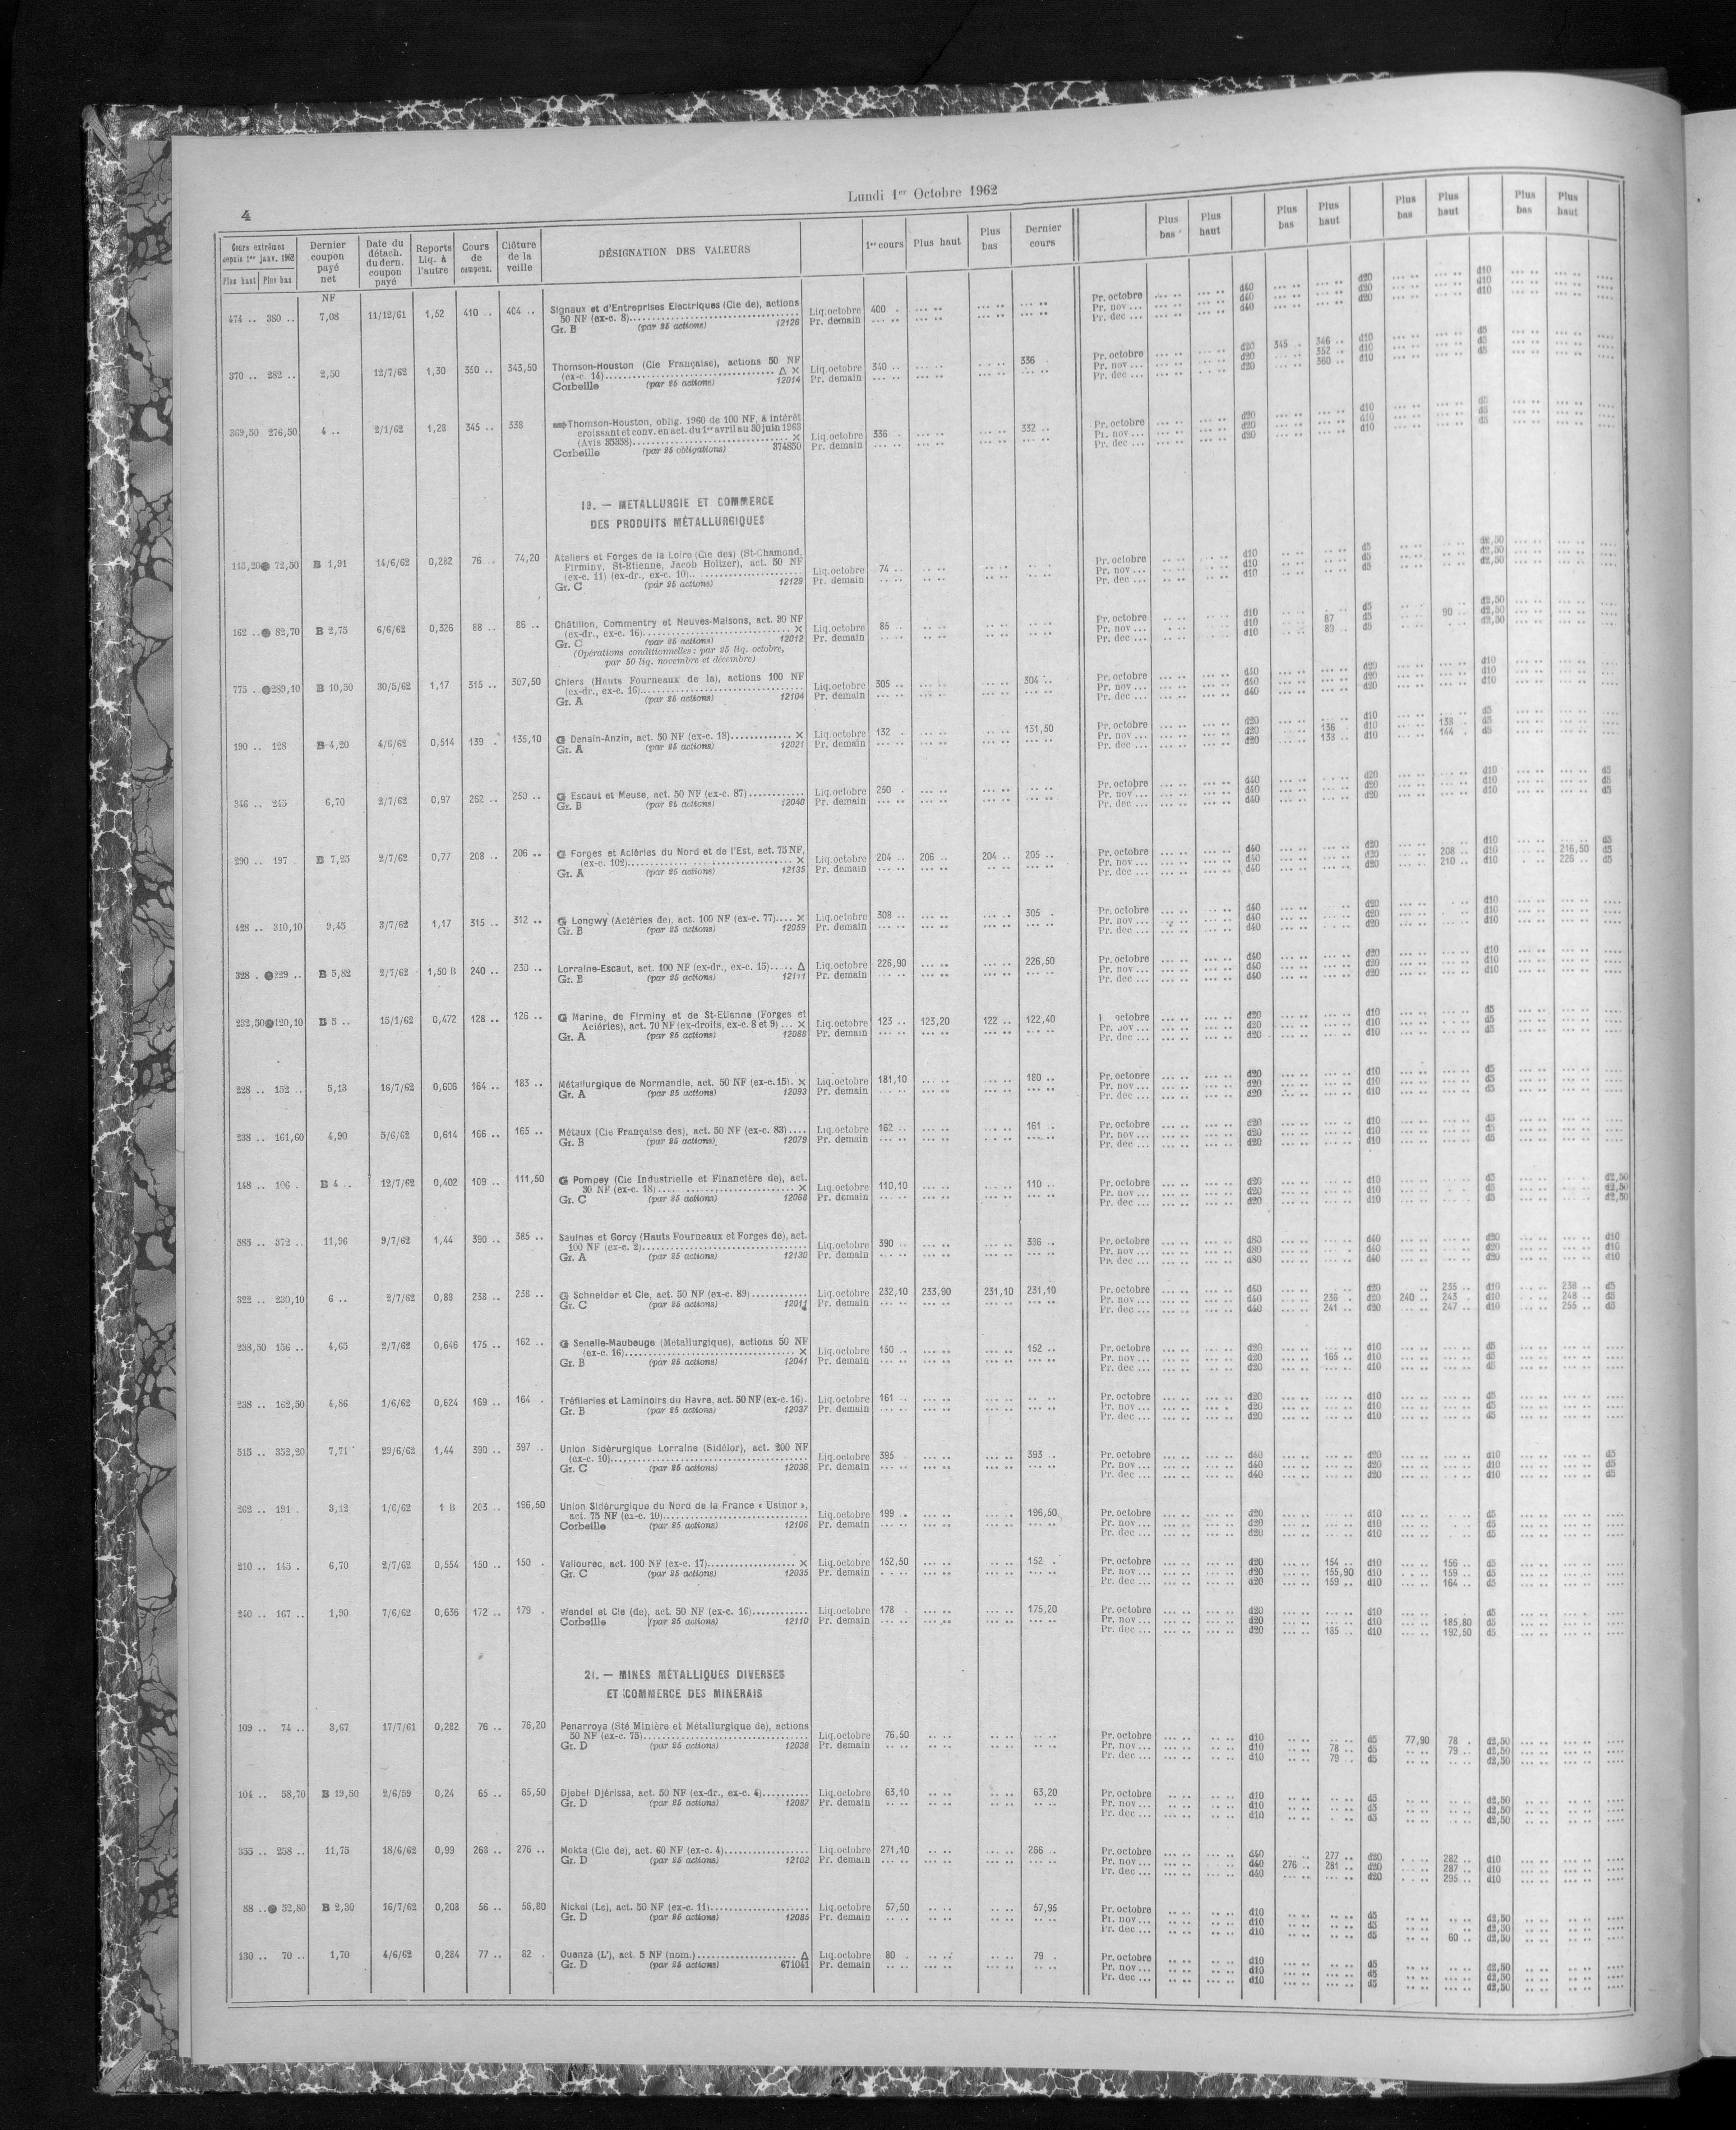 4
Lundi 1er Octobre 1962
Cours extrêmes depuis 1er janv. 1962 Plus haut Plus bas | Dernier coupon payé net | Date du détach. du dern. coupon payé | Reports Liq. à l'autre | Cours de compens. | Clôture de la veille | DÉSIGNATION DES VALEURS | 1er cours | Plus haut | Plus bas | Dernier cours | Plus bas | Plus haut | Plus bas | Plus haut | Plus bas | Plus haut | Plus bas | Plus haut
NF
474 .. 380 .. 7,08 11/12/61 1,52 410 .. 404 .. Signaux et d'Entreprises Electriques (Cie de), actions
50 NF (ex-c. 8) Liq. octobre 400 . Pr. octobre d40 d20 d10
Gr. B (par 25 actions) 12126 Pr. demain Pr. nov ... d40 d20 d10
Pr. dec ... d40 d20 d10
370 .. 282 .. 2,50 12/7/62 1,30 350 .. 343,50 Thomson-Houston (Cie Française), actions 50 NF
(ex-c. 14) Δ X Liq. octobre 340 .. 336 . Pr. octobre d20 345 . 346 .. d10 d5
Corbeille (par 25 actions) 12014 Pr. demain Pr. nov ... d20 352 .. d10 d5
Pr. dec ... d20 360 .. d10 d5
369,50 276,50 4 .. 2/1/62 1,28 345 .. 338 Thomson-Houston, oblig. 1960 de 100 NF, à intérêt
croissant et conv. en act. du 1er avril au 30 juin 1963
(Avis 35358) X Liq. octobre 336 . 332 .. Pr. octobre d20 d10 d5
Corbeille (par 25 obligations) 374850 Pr. demain Pr. nov ... d20 d10 d5
Pr. dec ... d20 d10 d5
19. — METALLURGIE ET COMMERCE
DES PRODUITS MÉTALLURGIQUES
115,20 72,50 B 1,91 14/6/62 0,282 76 .. 74,20 Ateliers et Forges de la Loire (Cie des) (St-Chamond,
Firminy, St-Etienne, Jacob Holtzer), act. 50 NF
(ex-c. 11) (ex-dr., ex-c. 10) Liq. octobre 74 .. Pr. octobre d10 d5 d2,50
Gr. C (par 25 actions) 12129 Pr. demain Pr. nov ... d10 d5 d2,50
Pr. dec ... d10 d5 d2,50
162 .. 82,70 B 2,75 6/6/62 0,326 88 .. 86 .. Châtillon, Commentry et Neuves-Maisons, act. 30 NF
(ex-dr., ex-c. 16) X Liq. octobre 85 .. Pr. octobre d10 d5 d2,50
Gr. C (par 25 actions) 12012 Pr. demain Pr. nov ... d10 87 d5 90 .. d2,50
Pr. dec ... d10 89 .. d5 d2,50
(Opérations conditionnelles : par 25 liq. octobre,
par 50 liq. novembre et décembre)
775 . 289,10 B 10,50 30/5/62 1,17 315 .. 307,50 Chiers (Hauts Fourneaux de la), actions 100 NF
(ex-dr., ex-c. 16) Liq. octobre 305 .. 304 .. Pr. octobre d40 d20 d10
Gr. A (par 25 actions) 12104 Pr. demain Pr. nov ... d40 d20 d10
Pr. dec ... d40 d20 d10
190 .. 128 B 4,20 4/6/62 0,514 139 . 135,10 G Denain-Anzin, act. 50 NF (ex-c. 18) X Liq. octobre 132 . 131,50 Pr. octobre d20 d10 d5
Gr. A (par 25 actions) 12021 Pr. demain Pr. nov ... d20 136 d10 138 . d5
Pr. dec ... d20 138 .. d10 144 . d5
346 .. 245 6,70 2/7/62 0,97 262 .. 250 .. G Escaut et Meuse, act. 50 NF (ex-c. 87) Liq. octobre 250 . Pr. octobre d40 d20 d10 d5
Gr. B (par 25 actions) 12040 Pr. demain Pr. nov ... d40 d20 d10 d5
Pr. dec ... d40 d20 d10 d5
290 .. 197 . B 7,25 2/7/62 0,77 208 .. 206 .. G Forges et Aciéries du Nord et de l'Est, act. 75 NF,
(ex-c. 102) X Liq. octobre 204 .. 206 .. 204 .. 205 .. Pr. octobre d40 d20 d10 d5
Gr. A (par 25 actions) 12135 Pr. demain Pr. nov ... d40 d20 208 .. d10 216,50 d5
Pr. dec ... d40 d20 210 .. d10 226 .. d5
428 .. 310,10 9,45 3/7/62 1,17 315 .. 312 .. G Longwy (Aciéries de), act. 100 NF (ex-c. 77) X Liq. octobre 308 .. 305 . Pr. octobre d40 d20 d10
Gr. B (par 25 actions) 12059 Pr. demain Pr. nov ... d40 d20 d10
Pr. dec ... d40 d20 d10
328 . 229 .. B 5,82 2/7/62 1,50 B 240 .. 230 .. Lorraine-Escaut, act. 100 NF (ex-dr., ex-c. 15) Δ Liq. octobre 226,90 226,50 Pr. octobre d40 d20 d10
Gr. B (par 25 actions) 12111 Pr. demain Pr. nov ... d40 d20 d10
Pr. dec ... d40 d20 d10
232,50 120,10 B 5 .. 15/1/62 0,472 128 .. 126 .. G Marine, de Firminy et de St-Etienne (Forges et
Aciéries), act. 70 NF (ex-droits, ex-c. 8 et 9) ... X Liq. octobre 123 .. 123,20 122 .. 122,40 octobre d20 d10 d5
Gr. A (par 25 actions) 12088 Pr. demain Pr. nov ... d20 d10 d5
Pr. dec ... d20 d10 d5
228 .. 152 .. 5,13 16/7/62 0,606 164 .. 183 .. Métallurgique de Normandie, act. 50 NF (ex-c. 15). X Liq. octobre 181,10 180 .. Pr. octobre d20 d10 d5
Gr. A (par 25 actions) 12093 Pr. demain Pr. nov ... d20 d10 d5
Pr. dec ... d20 d10 d5
238 .. 161,60 4,90 5/6/62 0,614 166 .. 165 .. Métaux (Cie Française des), act. 50 NF (ex-c. 83) .... Liq. octobre 162 .. 161 .. Pr. octobre d20 d10 d5
Gr. B (par 25 actions) 12079 Pr. demain Pr. nov ... d20 d10 d5
Pr. dec ... d20 d10 d5
148 .. 106 . B 4 .. 12/7/62 0,402 109 .. 111,50 G Pompey (Cie Industrielle et Financière de), act.
30 NF (ex-c. 18) X Liq. octobre 110,10 110 .. Pr. octobre d20 d10 d5 d2,50
Gr. C (par 25 actions) 12068 Pr. demain Pr. nov ... d20 d10 d5 d2,50
Pr. dec ... d20 d10 d5 d2,50
585 .. 372 .. 11,96 9/7/62 1,44 390 .. 385 .. Saulnes et Gorcy (Hauts Fourneaux et Forges de), act.
100 NF (ex-c. 2) Liq. octobre 390 .. 386 .. Pr. octobre d80 d40 d20 d10
Gr. A (par 25 actions) 12130 Pr. demain Pr. nov ... d80 d40 d20 d10
Pr. dec ... d80 d40 d20 d10
322 .. 230,10 6 .. 2/7/62 0,88 238 .. 238 .. G Schneider et Cie, act. 50 NF (ex-c. 89) Liq. octobre 232,10 233,90 231,10 231,10 Pr. octobre d40 d20 235 .. d10 238 .. d5
Gr. C (par 25 actions) 12011 Pr. demain Pr. nov ... d40 236 .. d20 240 .. 243 .. d10 248 .. d5
Pr. dec ... d40 241 .. d20 247 .. d10 255 .. d5
238,50 156 .. 4,65 2/7/62 0,646 175 .. 162 .. G Senelle-Maubeuge (Métallurgique), actions 50 NF
(ex-c. 16) X Liq. octobre 150 .. 152 .. Pr. octobre d20 d10 d5
Gr. B (par 25 actions) 12041 Pr. demain Pr. nov ... d20 165 .. d10 d5
Pr. dec ... d20 d10 d5
238 .. 162,50 4,86 1/6/62 0,624 169 .. 164 . Tréfileries et Laminoirs du Havre, act. 50 NF (ex-c. 16). Liq. octobre 161 . Pr. octobre d20 d10 d5
Gr. B (par 25 actions) 12037 Pr. demain Pr. nov ... d20 d10 d5
Pr. dec ... d20 d10 d5
515 .. 352,20 7,71 29/6/62 1,44 390 .. 397 .. Union Sidérurgique Lorraine (Sidélor), act. 200 NF
(ex-c. 10) Liq. octobre 395 393 .. Pr. octobre d40 d20 d10 d5
Gr. C (par 25 actions) 12036 Pr. demain Pr. nov ... d40 d20 d10 d5
Pr. dec ... d40 d20 d10 d5
262 .. 191 . 3,12 1/6/62 1 B 203 .. 196,50 Union Sidérurgique du Nord de la France « Usinor »,
act. 75 NF (ex-c. 10) Liq. octobre 199 . 196,50 Pr. octobre d20 d10 d5
Corbeille (par 25 actions) 12106 Pr. demain Pr. nov ... d20 d10 d5
Pr. dec ... d20 d10 d5
210 .. 145 . 6,70 2/7/62 0,554 150 .. 150 . Vallourec, act. 100 NF (ex-c. 17) X Liq. octobre 152,50 152 . Pr. octobre d20 154 .. d10 156 .. d5
Gr. C (par 25 actions) 12035 Pr. demain Pr. nov ... d20 155,90 d10 159 .. d5
Pr. dec ... d20 159 .. d10 164 .. d5
240 .. 167 .. 1,90 7/6/62 0,636 172 .. 179 . Wendel et Cie (de), act. 50 NF (ex-c. 16) Liq. octobre 178 . 175,20 Pr. octobre d20 d10 d5
Corbeille (par 25 actions) 12110 Pr. demain Pr. nov ... d20 d10 185,80 d5
Pr. dec ... d20 185 .. d10 192,50 d5
21. — MINES MÉTALLIQUES DIVERSES
ET COMMERCE DES MINERAIS
109 .. 74 .. 3,67 17/7/61 0,282 76 .. 76,20 Penarroya (Sté Minière et Métallurgique de), actions
50 NF (ex-c. 75) Liq. octobre 76,50 Pr. octobre d10 d5 77,90 78 . d2,50
Gr. D (par 25 actions) 12038 Pr. demain Pr. nov ... d10 78 .. d5 79 .. d2,50
Pr. dec ... d10 79 . d5 d2,50
104 .. 58,70 B 19,50 2/6/59 0,24 65 .. 65,50 Djebel Djérissa, act. 50 NF (ex-dr., ex-c. 4) Liq. octobre 63,10 63,20 Pr. octobre d10 d5 d2,50
Gr. D (par 25 actions) 12087 Pr. demain Pr. nov ... d10 d5 d2,50
Pr. dec ... d10 d5 d2,50
355 .. 258 .. 11,75 18/6/62 0,99 268 .. 276 .. Mokta (Cie de), act. 60 NF (ex-c. 4) Liq. octobre 271,10 266 .. Pr. octobre d40 277 .. d20 282 .. d10
Gr. D (par 25 actions) 12102 Pr. demain Pr. nov ... d40 276 .. 281 .. d20 287 .. d10
Pr. dec ... d40 d20 295 .. d10
88 .. 52,80 B 2,30 16/7/62 0,208 56 .. 56,80 Nickel (Le), act. 50 NF (ex-c. 11) Liq. octobre 57,50 57,95 Pr. octobre d10 d5 d2,50
Gr. D (par 25 actions) 12085 Pr. demain Pr. nov ... d10 d5 d2,50
Pr. dec ... d10 d5 60 .. d2,50
130 .. 70 .. 1,70 4/6/62 0,284 77 .. 82 . Ouenza (L'), act. 5 NF (nom.) Δ Liq. octobre 80 . 79 . Pr. octobre d10 d5 d2,50
Gr. D (par 25 actions) 671041 Pr. demain Pr. nov ... d10 d5 d2,50
Pr. dec ... d10 d5 d2,50